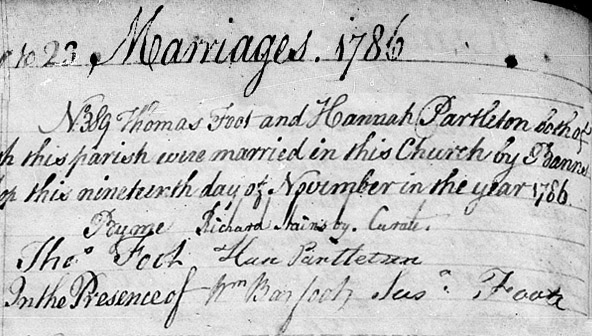 to 23 Marriages. 1786
No 389 Thomas Foot and Hannah Partleton both of
this parish were married in this Church by Banns
this nineteenth day of November in the year 1786
By me Richard Stainsby. Curate.
Thos Foot Han Partleton
In the Presence of Wm Barfoot Susa Foot